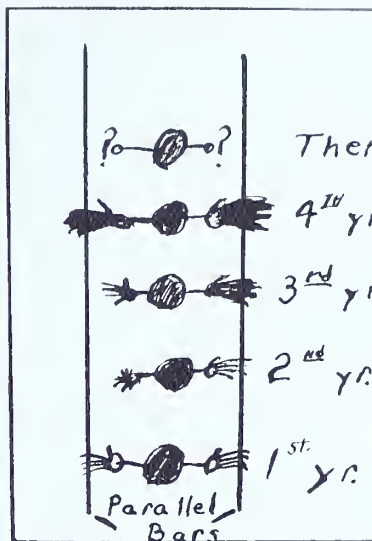 ? ?
4th yr
3rd yr
2nd yr.
1st. yr.
Parallel
Bars